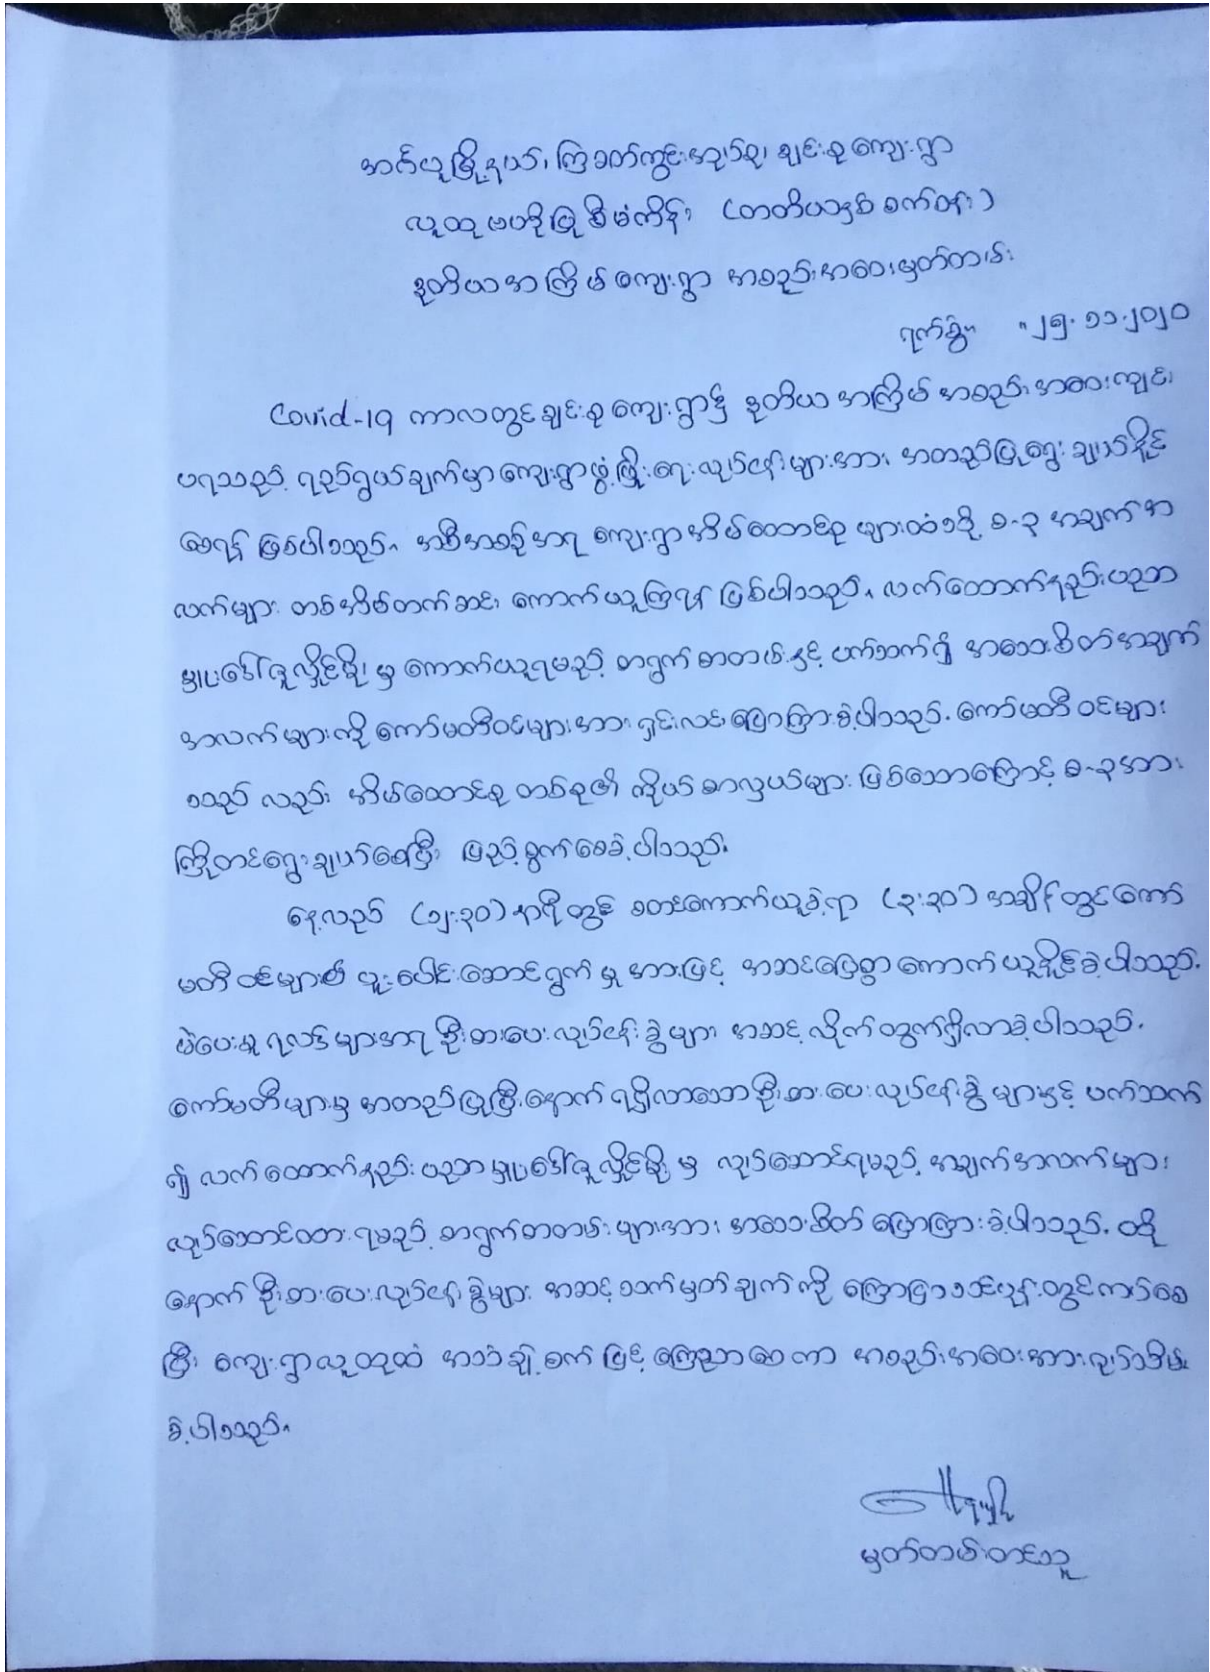 အင်္ဂပူမြို့နယ်၊ ကြခတ်ကွင်းအုပ်စု၊ ချင်းစုကျေးရွာ
လူထုဗဟိုပြုစီမံကိန်း (တတိယနှစ်စက်ဝန်း)
ဒုတိယအကြိမ်ကျေးရွာ အစည်းအဝေးမှတ်တမ်း
ရက်စွဲ။ ။၂၅.၁၁.၂၀၂၀
Covid-19 ကာလတွင်ချင်းစုကျေးရွာ၌ ဒုတိယအကြိမ် အစည်းအဝေးကျင်း
ပရသည့် ရည်ရွယ်ချက်မှာကျေးရွာဖွံ့ဖြိုးရေးလုပ်ငန်းများအား အတည်ပြုရွေးချယ်နိုင်
စေရန် ဖြစ်ပါသည်။ အစီအစဉ်အရ ကျေးရွာအိမ်ထောင်စုများထံသို့ စ-၃ အချက်အ
လက်များ တစ်အိမ်တက်ဆင်း ကောက်ယူကြရန် ဖြစ်ပါသည်။ လက်ထောက်နည်းပညာ
မှူးဒေါ်ဇူလှိုင်စိုး မှ ကောက်ယူရမည့် စာရွက်စာတမ်းနှင့် ပက်သက်၍ အသေးစိတ်အချက်
အလက်များကို ကော်မတီဝင်များအား ရှင်းလင်းပြောကြားခဲ့ပါသည်။ ကော်မတီဝင်များ
သည် လည်း အိမ်ထောင်စု တစ်စု၏ ကိုယ်စာလှယ်များ ဖြစ်သောကြောင့် စ-၃အား
ကြိုတင်ရွေးချယ်စေပြီး ဖြည့်စွက်စေခဲ့ပါသည်။
နေ့လည် (၁၂:၃၀)နာရီတွင် စတင်ကောက်ယူခဲ့ရာ (၃:၃၀)အချိန်တွင်ကော်
မတီဝင်များ၏ ပူးပေါင်းဆောင်ရွက်မှုအားဖြင့် အဆင်ပြေစွာကောက်ယူနိုင်ခဲ့ပါသည်။
မဲပေးမှုရလဒ်များအရ ဦးစားပေးလုပ်ငန်းခွဲများ အဆင့်လိုက်ထွက်ရှိလာခဲ့ပါသည်။
ကော်မတီများမှ အတည်ပြုပြီးနောက် ရရှိလာသောဦးစားပေးလုပ်ငန်းခွဲများနှင့် ပက်သက်
၍ လက်ထောက်နည်းပညာမှူးဒေါ်ဇူလှိုင်စိုးမှ လုပ်ဆောင်ရမည့် အချက်အလက်များ
လုပ်ဆောင်ထားရမည့် စာရွက်စာတမ်းများအား အသေးစိတ် ပြောကြားခဲ့ပါသည်။ ထို့
နောက် ဦးစားပေးလုပ်ငန်းခွဲများ အဆင့်သတ်မှတ်ချက်ကို ကြော်ငြာသင်ပုန်းတွင်ကပ်စေ
ပြီး ကျေးရွာလူထုထံ အသံချဲ့စက်ဖြင့် ကြေညာစေကာ အစည်းအဝေးအားရုပ်သိမ်း
ခဲ့ပါသည်။
မှတ်တမ်းတင်သူ